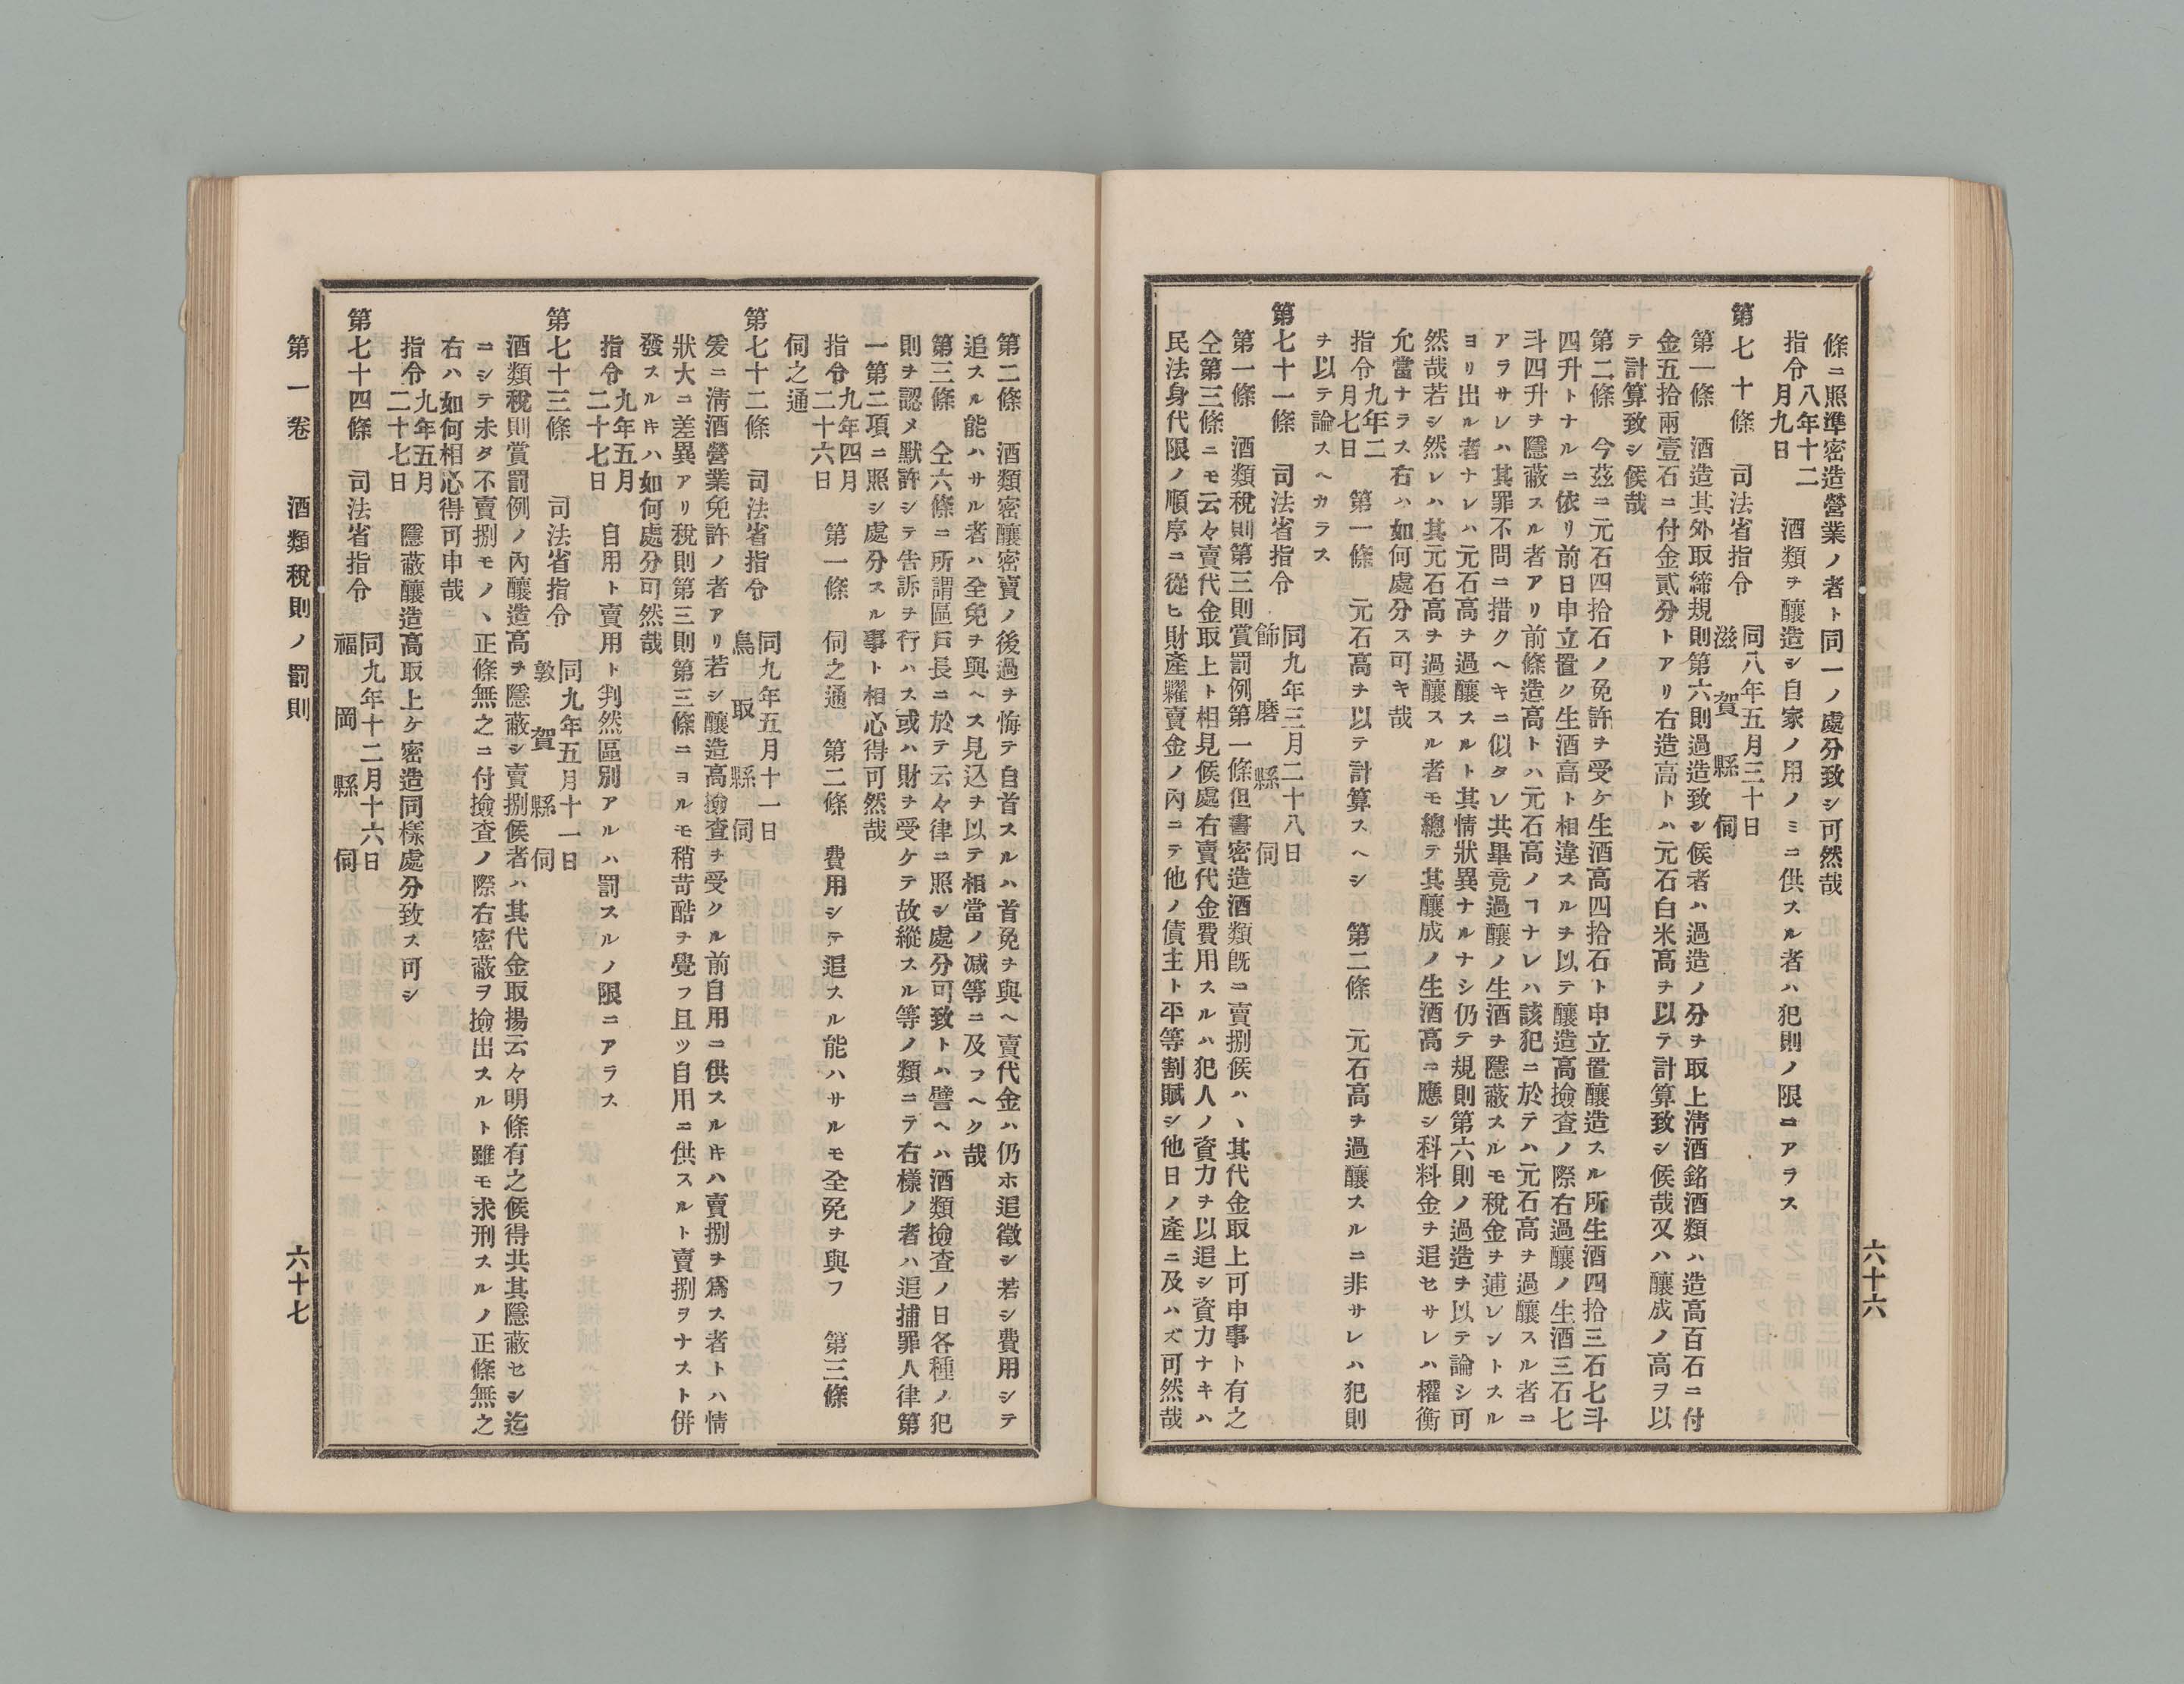 條ニ照準密造營業ノ者ト同一ノ處分致シ可然哉
指令八年十二月九日　酒類ヲ釀造シ自家ノ用ノミニ供スル者ハ犯則ノ限ニアラス
第七十條　司法省指令　同八年五月三十日　滋賀縣伺
第一條　酒造其外取締規則第六則過造致シ候者ハ過造ノ分ヲ取上淸酒銘酒類ハ造高百石ニ付
金五拾兩壹石ニ付金貳分トアリ右造高トハ元石白米高ヲ以テ計算致シ候哉又ハ釀成ノ高ヲ以
テ計算致シ候哉
第二條　今茲ニ元石四拾石ノ免許ヲ受ケ生酒高四拾石ト申立置釀造スル所生酒四拾三石七斗
四升トナルニ依リ前日申立置ク生酒高ト相違スルヲ以テ釀造高撿查ノ際右過釀ノ生酒三石七
斗四升ヲ隱蔽スル者アリ前條造高トハ元石高ノヿナレハ該犯ニ於テハ元石高ヲ過釀スル者ニ
アラサレハ其罪不問ニ措クヘキニ似タレ共畢竟過釀ノ生酒ヲ隱蔽スルモ稅金ヲ逋レントスル
ヨリ出ル者ナレハ元石高ヲ過釀スルト其情狀異ナルナシ仍テ規則第六則ノ過造ヲ以テ論シ可
然哉若シ然レハ其元石高ヲ過釀スル者モ總テ其釀成ノ生酒高ニ應シ科料金ヲ追セサレハ權衡
允當ナラス右ハ如何處分ス可キ哉
指令九年二月七日　第一條　元石高ヲ以テ計算スヘシ　第二條　元石高ヲ過釀スルニ非サレハ犯則
ヲ以テ論スヘカラス
第七十一條　司法省指令　同九年三月二十八日　飾磨縣伺
第一條　酒類稅則第三則賞罰例第一條但書密造酒類旣ニ賣捌候ハヽ其代金取上可申事ト有之
仝第三條ニモ云々賣代金取上ト相見候處右賣代金費用スルハ犯人ノ資力ヲ以追シ資力ナキハ
民法身代限ノ順序ニ從ヒ財產糶賣金ノ內ニテ他ノ債主ト平等割賦シ他日ノ產ニ及ハズ可然哉
六十六
第二條　酒類密釀密賣ノ後過ヲ悔テ自首スルハ首免ヲ與ヘ賣代金ハ仍ホ追徵シ若シ費用シテ
追スル能ハサル者ハ全免ヲ與ヘス見込ヲ以テ相當ノ減等ニ及フヘク哉
第三條　仝六條ニ所謂區戶長ニ於テ云々律ニ照シ處分可致トハ譬ヘハ酒類撿查ノ日各種ノ犯
則ヲ認メ默許シテ告訴ヲ行ハス或ハ財ヲ受ケテ故縱スル等ノ類ニテ右樣ノ者ハ追捕罪人律第
一第二項ニ照シ處分スル事ト相心得可然哉
指令九年四月二十六日　第一條　伺之通　第二條　費用シテ追スル能ハサルモ全免ヲ與フ　第三條
伺之通
第七十二條　司法省指令　同九年五月十一日　鳥取縣伺
爰ニ淸酒營業免許ノ者アリ若シ釀造高撿查ヲ受クル前自用ニ供スルキハ賣捌ヲ爲ス者トハ情
狀大ニ差異アリ稅則第三則第三條ニヨルモ稍苛酷ヲ覺フ且ツ自用ニ供スルト賣捌ヲナスト併
發スルキハ如何處分可然哉
指令九年五月二十七日　自用ト賣用ト判然區別アルハ罰スルノ限ニアラス
第七十三條　司法省指令　同九年五月十一日　敦賀縣伺
酒類稅則賞罰例ノ內釀造高ヲ隱蔽シ賣捌候者ハ其代金取揚云々明條有之候得共其隱蔽セシ迄
ニシテ未タ不賣捌モノハ正條無之ニ付撿查ノ際右密蔽ヲ撿出スルト雖モ求刑スルノ正條無之
右ハ如何相心得可申哉
指令九年五月二十七日　隱蔽釀造高取上ケ密造同樣處分致ス可シ
第七十四條　司法省指令　同九年十二月十六日　福岡縣伺
第一卷　酒類稅則ノ罰則　六十七